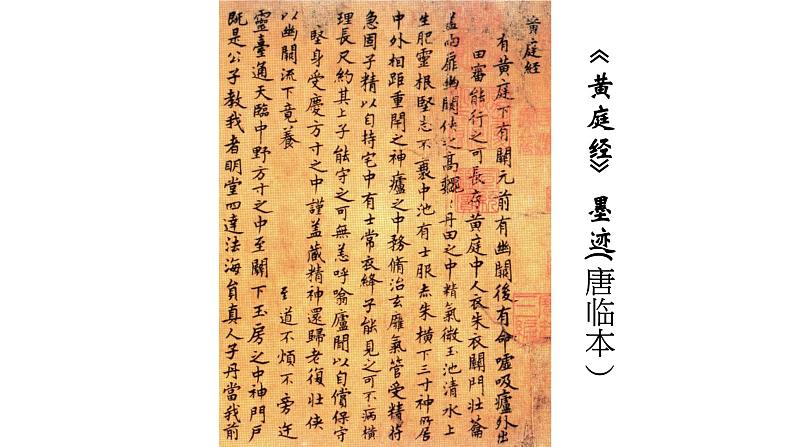 《黄庭经》墨迹(唐临本)
黄庭经
有黄庭下有關元前有幽闕後有命噓吸廬外出
田審能行之可長存黄庭中人衣朱衣關門壮蘥
盖两扉幽闕侠之高巍丹田之中精氣微玉池清水上
生肥靈根堅志不衰中池有士服赤朱横下三寸神所居
中外相距重閇之神廬之中務脩治玄膺氣管受精苻
急固子精以自持宅中有士常衣絳子能見之可不病横
理長尺約其上子能守之可無恙呼噏廬閒以自償保守
堅身受慶方寸之中謹盖藏精神還歸老復壮侠
以幽闕流下竟養 至道不煩不旁迕
靈臺通天臨中野方寸之中至關下玉房之中神門戶
既是公子教我者明堂四達法海員真人子丹當我前